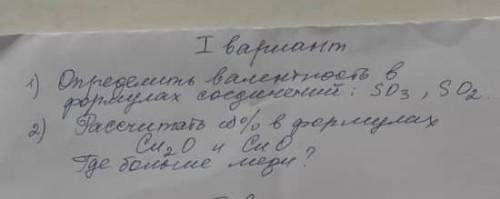 I вариант
1) Определить валентность в
формулах соединений: SO3, SO2
2) Рассчитать ω% в формулах
Cu2O и CuO
Где больше меди?